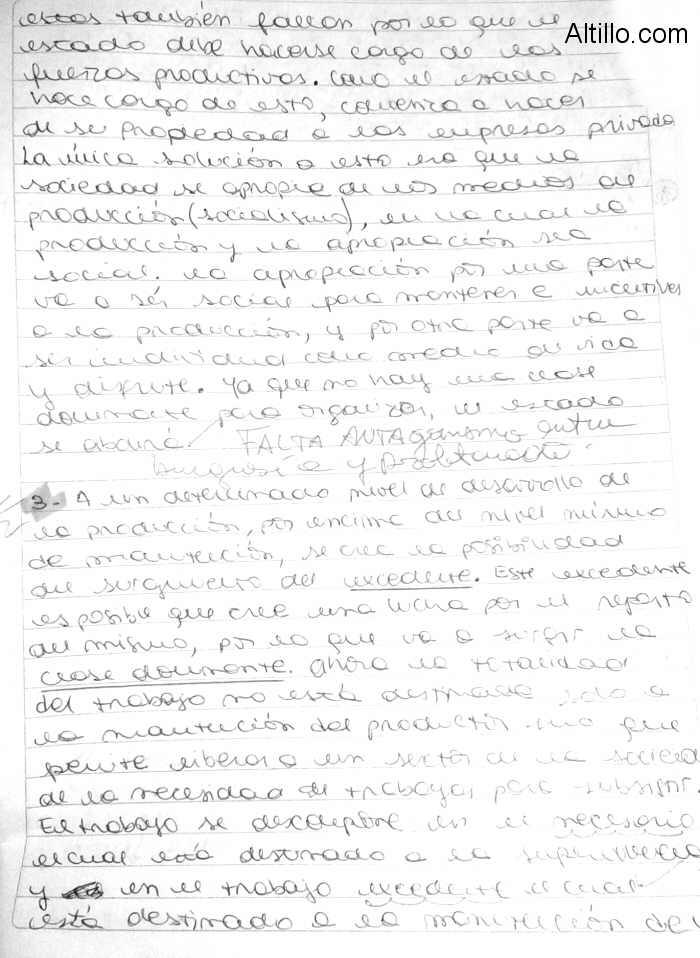 Altillo.com
estos también fallan por lo que el
estado debe hacerse cargo de las
fuerzas productivas. Como el estado se
hace cargo de esto, comienza a hacer
de su propiedad a las empresas privada
La única solución a esto era que la
sociedad se apropie de los medios de
producción (socialismo), en la cual la
producción y la apropiación sea
social. La apropiación por una parte
va a ser social para mantener e
a la producción, y por otra parte va a
ser individual como medio de vida
y disfrute. Ya que no hay una clase
dominante para organizar, el estado
se
FALTA ANTAgonismo entre
burguesía y proletariado.
3- A un determinado nivel de desarrollo de
la producción, por encima del nivel mínimo
de manutención, se crea la posibilidad
del surgimiento del excedente. Este excedente
es posible que cree una lucha por el reparto
del mismo, por lo que va a surgir la
clase dominante. Ahora la totalidad
del trabajo no está destinada solo a
la manutención del productor sino que
permite liberar a un sector de la socieda
de la necesidad de trabajar para subsistir.
El trabajo se descompone en el necesario
el cual está destinado a la supervivencia
y en el trabajo excedente el cual
está destinado a la manutención de